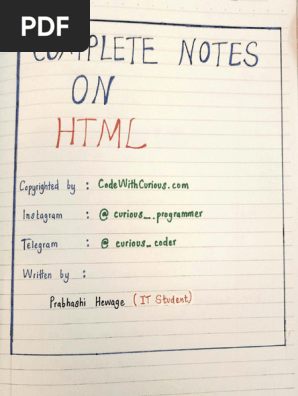 PDF
COMPLETE NOTES
ON
HTML
Copyrighted by : CodeWithCurious.com
Instagram : @ curious_.programmer
Telegram : @ curious_coder
Written by :
Prabhashi Hewage (IT Student)